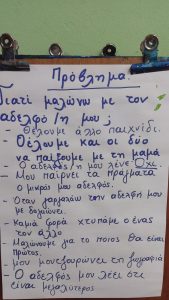 Πρόβλημα.
Γιατί μαλώνω με τον
αδελφό/η μου ;
- Θέλουμε άλλο παιχνίδι.
- Θέλωμε και οι δύο
να παίξουμε με τη μαμά
- Ο αδελφός/η μου λένε Όχι.
- Μου παίρνει τα πράγματα
ο μικρός μου αδελφός.
- Όταν γαργαλάω την αδελφή μου
με δαγκώνει.
- Καμιά φορά χτυπάμε ο ένας
τον άλλο
- Μαλώνουμε για το ποιος θα είναι
πρώτος.
- μου μουντζουρώνει τη ζωγραφιά
- Ο αδελφός μου λέει ότι
είναι μεγαλύτερος